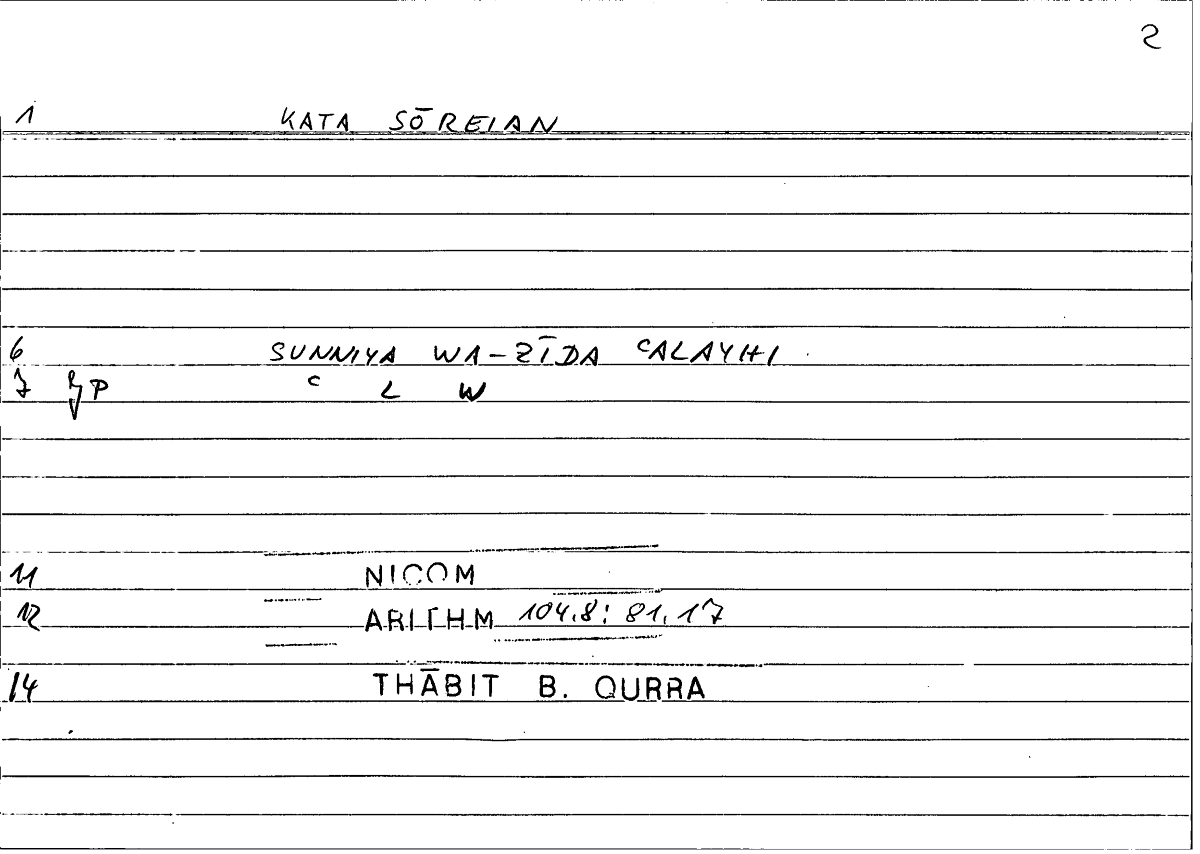 2
1 KATA SŌREIAN
6 SUNNIYA WA-ZĪDA ʿALAYHI
7 P ʿ L W
11 NICOM
12 ARITHM 104.8: 81.17
14 THĀBIT B. QURRA